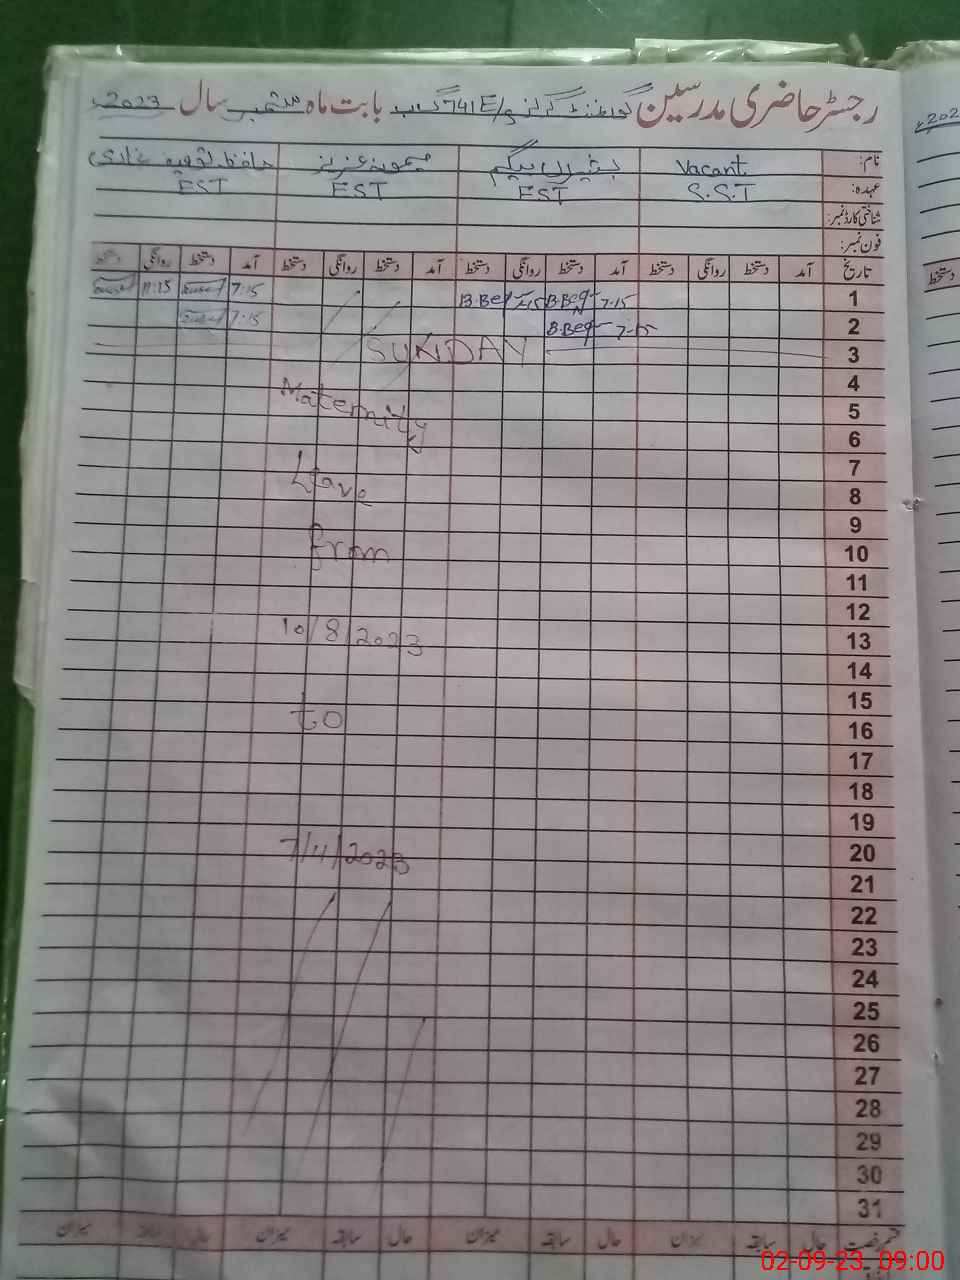 رجسٹر حاضری مدرسین گورنمنٹ گرلز 741E/ گ ب بابت ماہ ستمبر سال 2023ء
نام: Vacant بشیراں بیگم میمونہ عزیز حافظہ
عہدہ: S.S.T EST EST EST
شناختی کارڈ نمبر:
فون نمبر:
تاریخ آمد دستخط روانگی دستخط آمد دستخط روانگی دستخط آمد دستخط روانگی دستخط آمد دستخط روانگی دستخط
1 7-15 B.Beg B.Beg 7:15 11:15
2 7-15 B.Beg 7:15
3 SUNDAY
4
5 Maternity
6
7
8 Leave
9
10 from
11
12
13 10/8/2023
14
15
16 to
17
18
19
20 7/11/2023
21
22
23
24
25
26
27
28
29
30
31
قسم رخصت حال سابقہ میزان حال سابقہ میزان حال سابقہ میزان حال سابقہ میزان
2023
دستخط
02-09-23 09:00